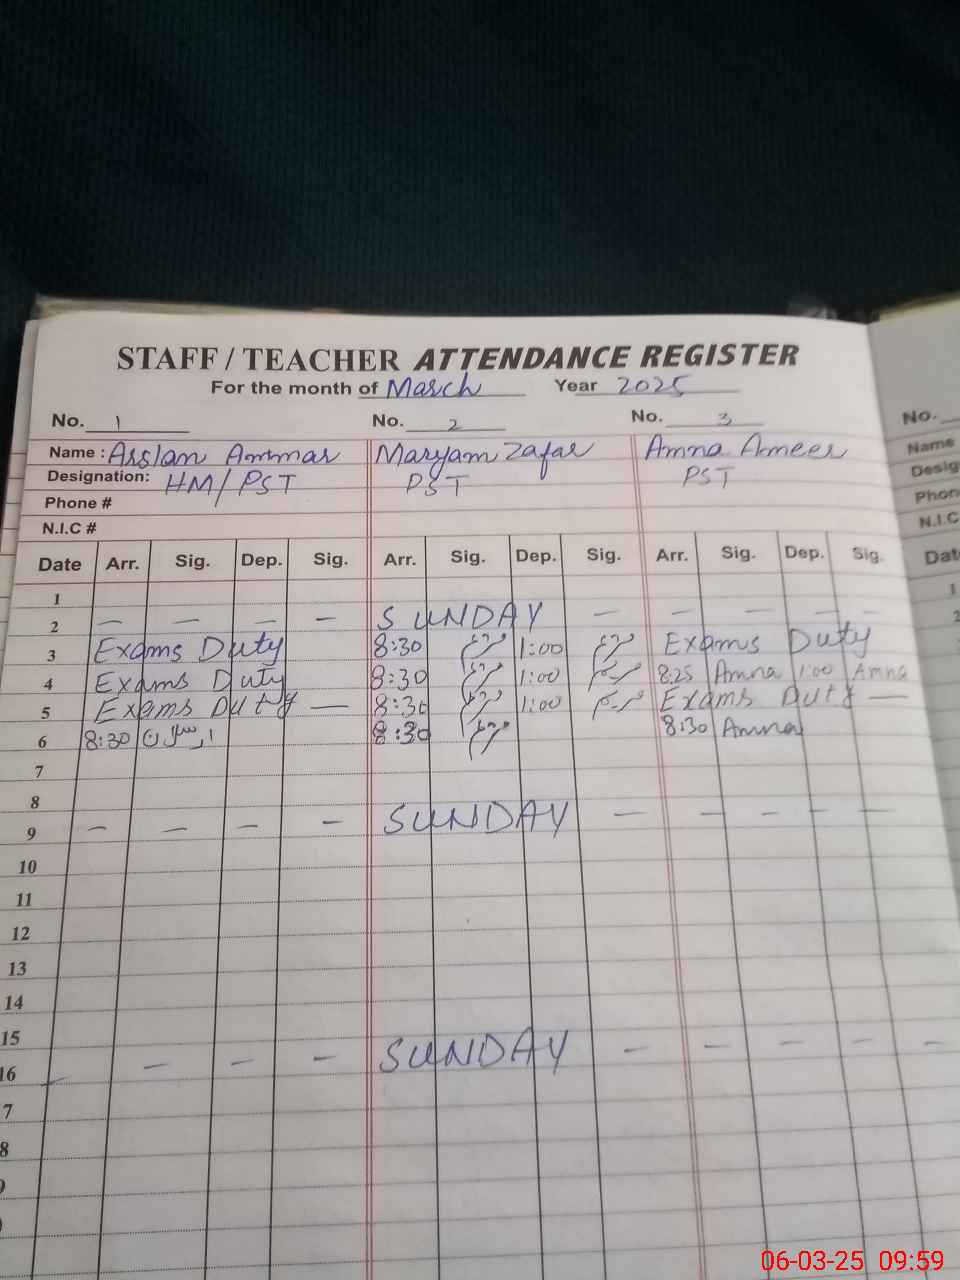 STAFF / TEACHER ATTENDANCE REGISTER
For the month of March Year 2025
No. 1 No. 2 No. 3 No.
Name : Arslan Ammar Maryam Zafar Amna Ameer Name
Designation: HM/PST PST PST Desig
Phone # Phon
N.I.C # N.I.C
Date Arr. Sig. Dep. Sig. Arr. Sig. Dep. Sig. Arr. Sig. Dep. Sig. Dat
1 1
2 — — — — SUNDAY — — — — —
3 Exams Duty 8:30 مریم 1:00 مریم Exams Duty
4 Exams Duty 8:30 مریم 1:00 مریم 8:25 Amna 1:00 Amna
5 Exams Duty — 8:30 مریم 1:00 مریم Exams Duty —
6 8:30 ارسلان 8:30 مریم 8:30 Amna
7
8
9 — — — — SUNDAY — — — — —
10
11
12
13
14
15
16 — — — — SUNDAY — — — — —
7
8
06-03-25 09:59